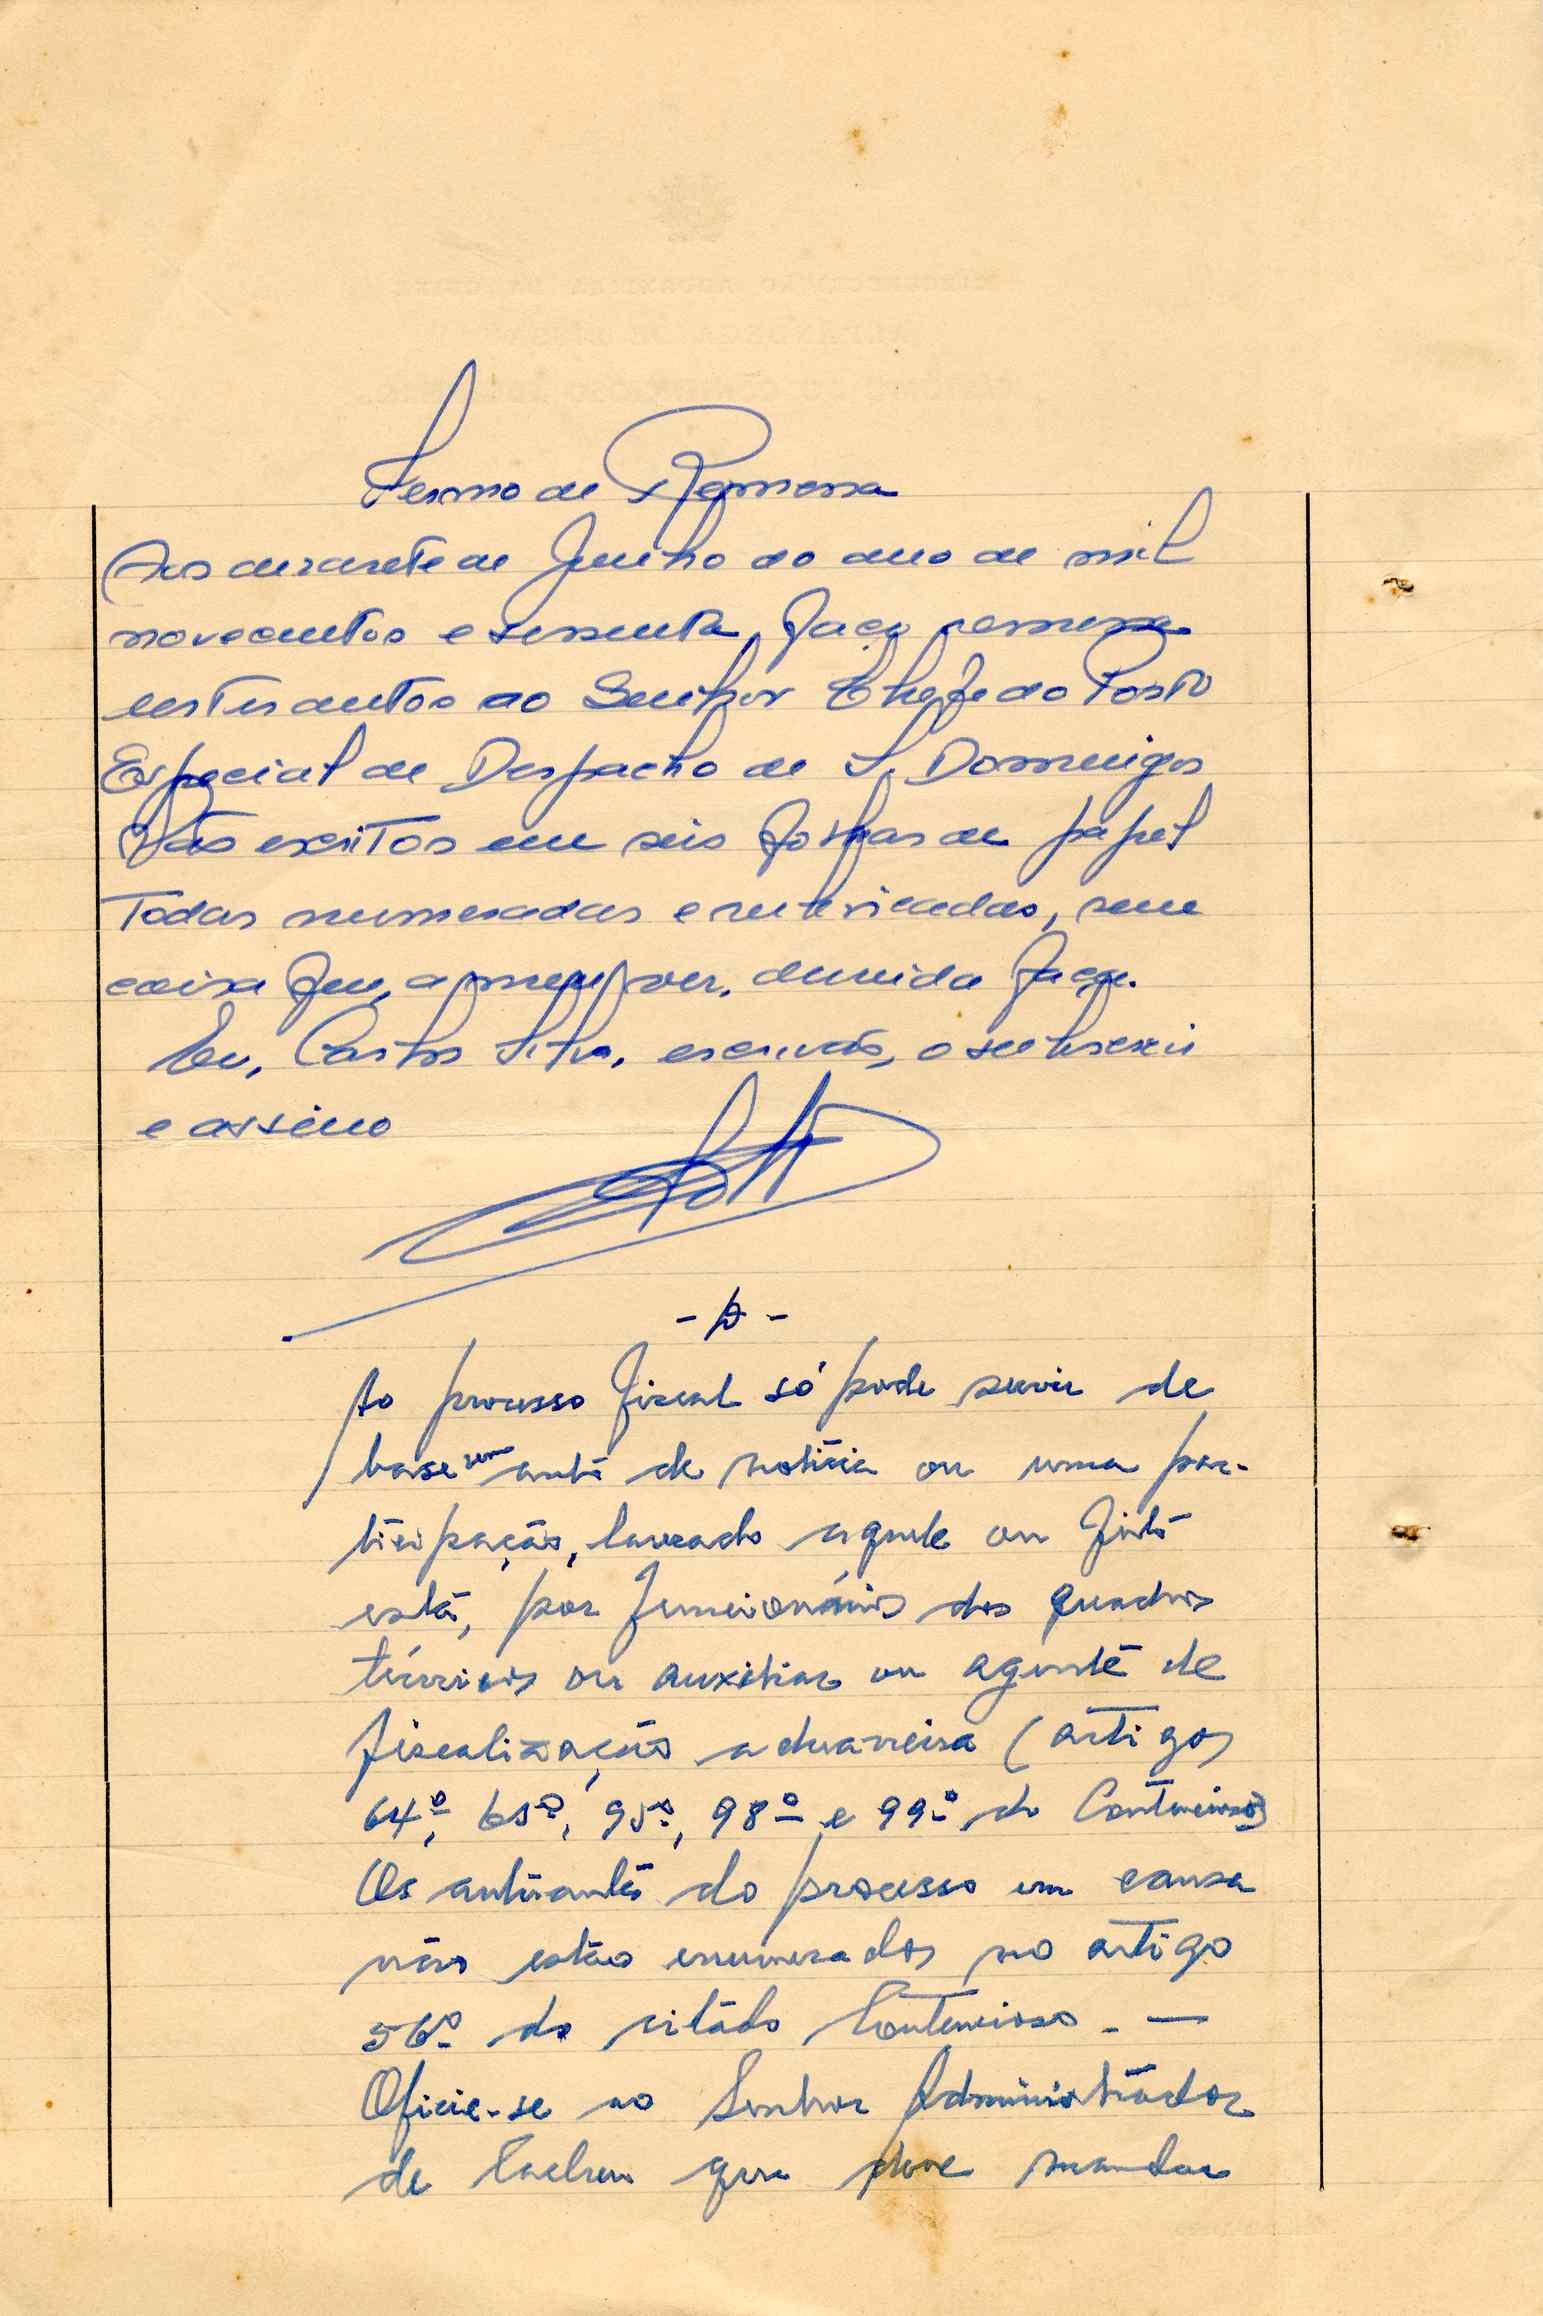 Termo de Remessa
Aos dezasete de Junho do ano de mil
novecentos e sessenta, faço remessa
destes autos ao Senhor Chefe do Posto
Especial de Despacho de S. Domingos
Vão escritos em seis folhas de papel
todas numeradas e rubricadas, sem
coisa que, a meu ver, duvida faça.
Eu, Carlos Silva, escrivão, o subscrevi
e assino
- D -
Ao processo fiscal só pode servir de
base um auto de notícia ou uma par-
ticipação, lavrado aquele ou feita
esta, por funcionários dos quadros
técnicos ou auxiliar ou agente de
fiscalização aduaneira (artigos
64º, 65º, 95º, 98º e 99º do Contencioso)
Os autuantes do processo em causa
não estão enumerados no artigo
56º do citado Contencioso. —
Oficie-se ao Senhor Administrador
de Cacheu que deve mandar